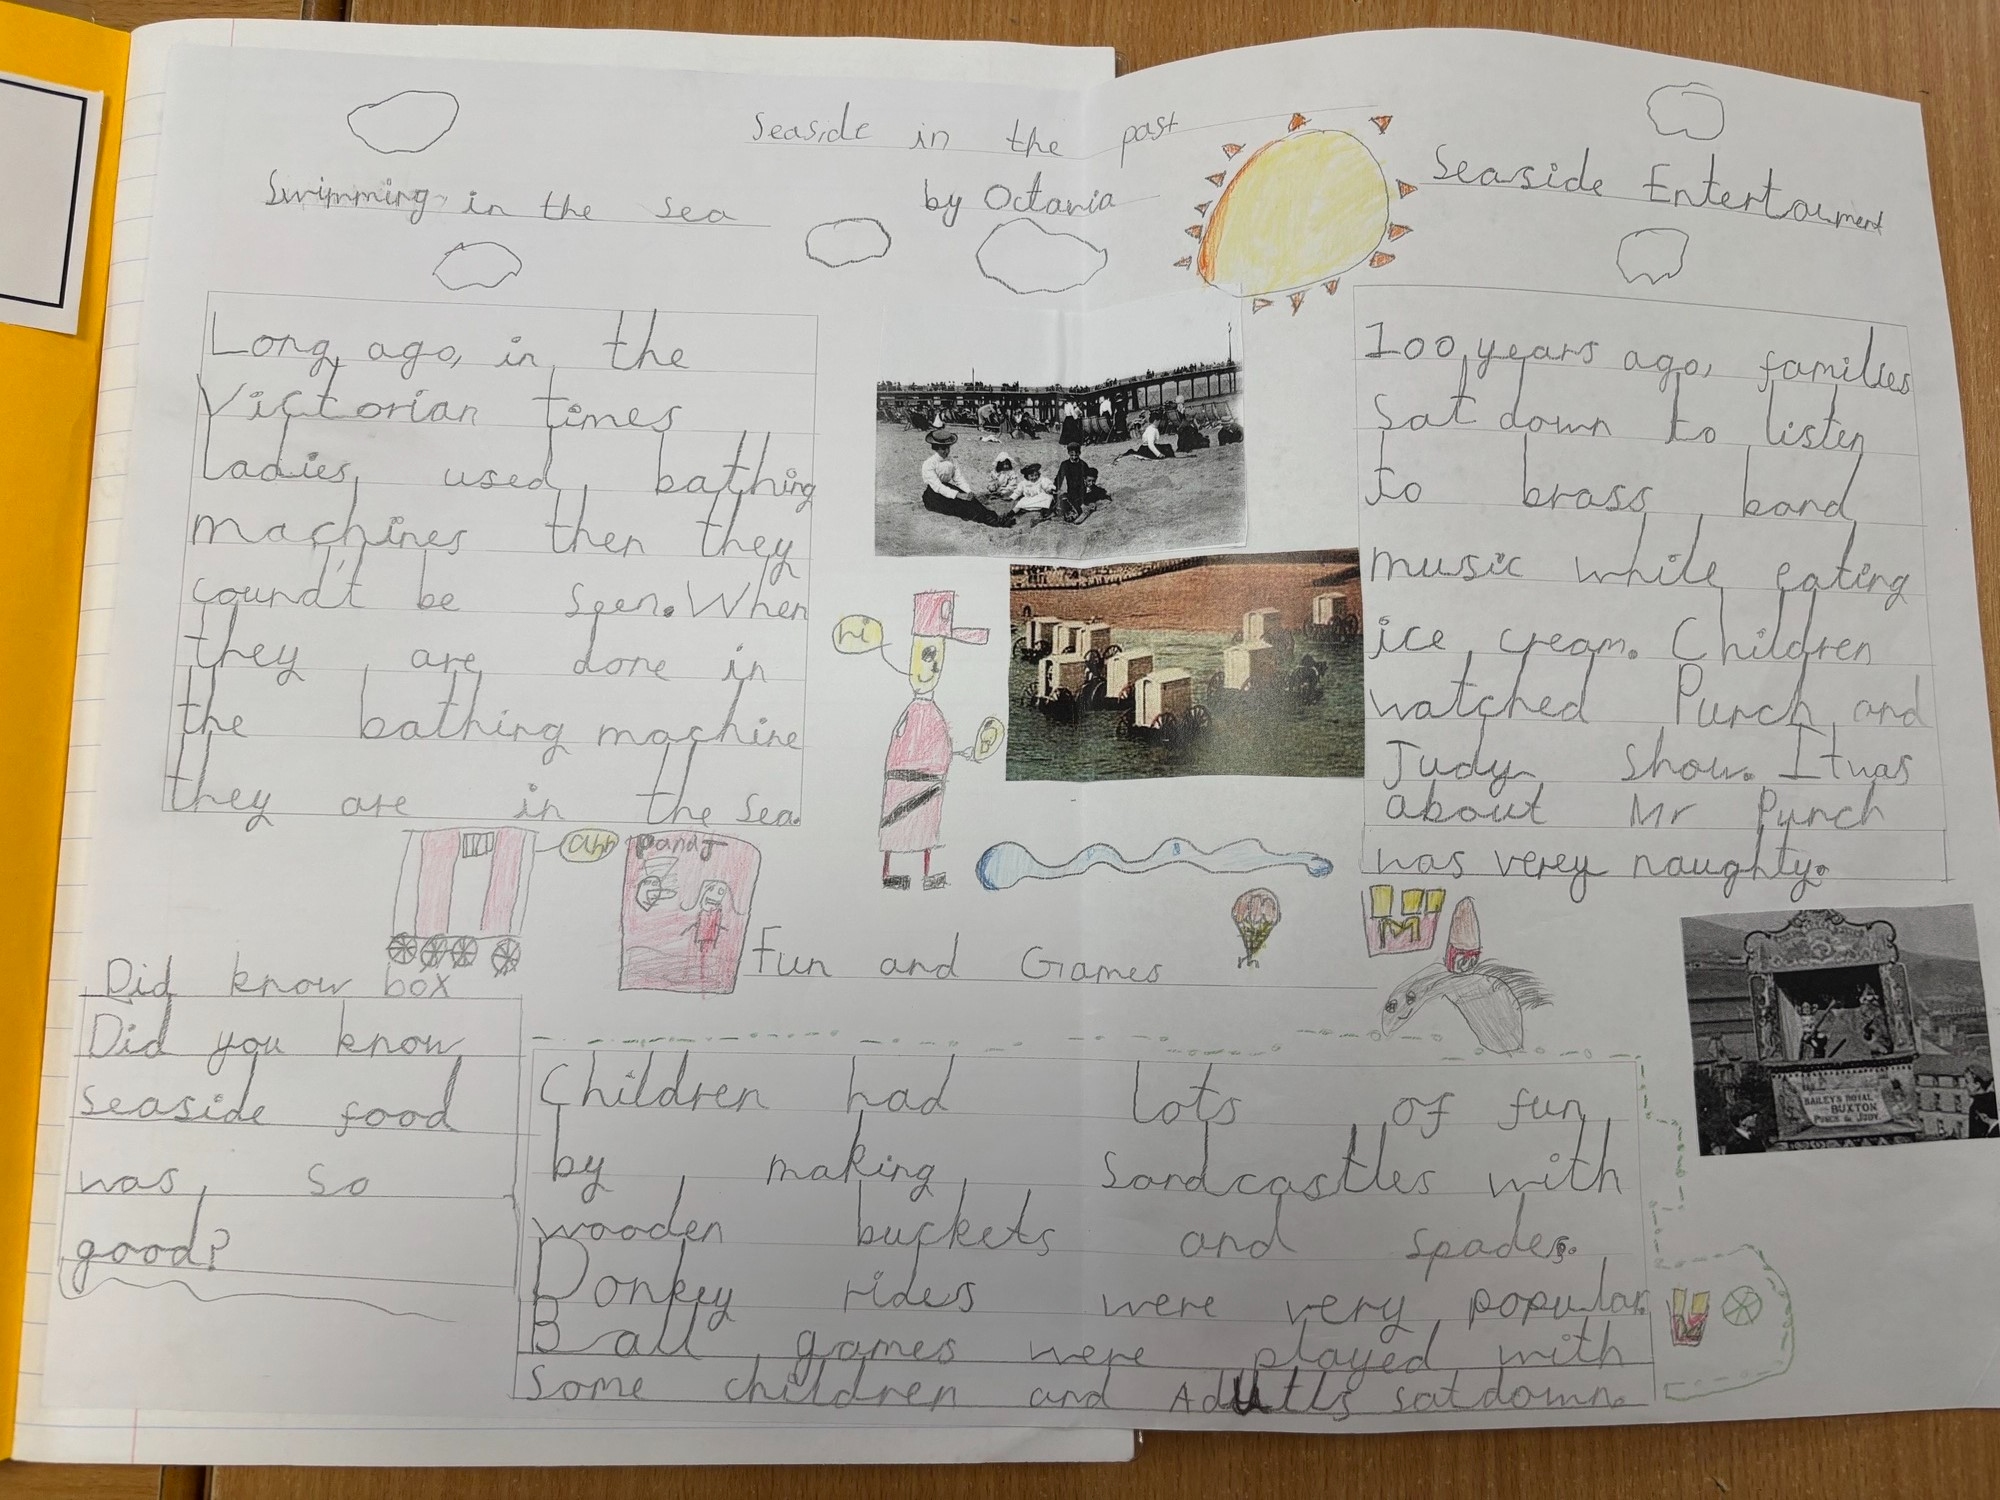 Seaside in the past
by Octavia
Swimming in the sea
Long ago, in the
Victorian times
Ladies used bathing
machines then they
cound't be seen. When
they are done in
the bathing machine
they are in the sea.
Seaside Entertainment
100 years ago, families
sat down to listen
to brass band
music while eating
ice cream. Children
watched Punch and
Judy show. It was
about Mr Punch
was verey naughty.
hi
ahh
P and J
Fun and Games
Children had lots of fun
by making sandcastles with
wooden buckets and spades.
Donkey rides were very popular.
Ball games were played with
some children and Adutls sat down.
Did know box
Did you know
seaside food
was so
good?
BAILEY'S ROYAL
BUXTON
PUNCH & JUDY